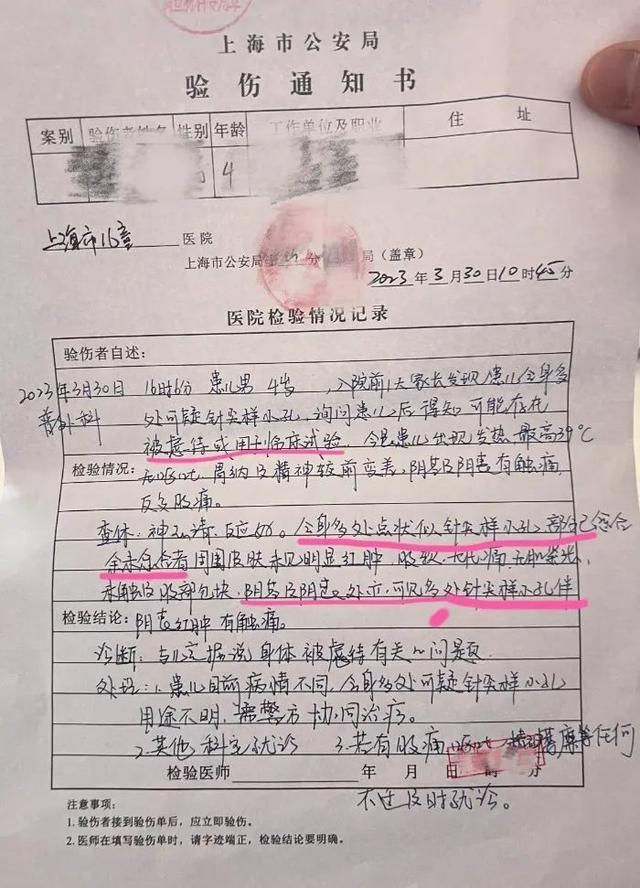 上海市公安局
验伤通知书
案别 验伤者姓名 性别 年龄 工作单位及职业 住址
4
上海市儿童 医院
上海市公安局 分 局（盖章）
2023年3月30日10时45分
医院检验情况记录
验伤者自述：
2023年3月30日 16时6分 患儿男 4岁 ，入院前1天家长发现患儿全身多
普外科 处可疑针尖样小孔，询问患儿后得知可能存在
被虐待或用于临床试验 今患儿出现发热 最高39℃
检验情况： 胃纳及精神较前变差，阴茎及阴囊有触痛，
反复腹痛。
查体：神志清，反应好。全身多处点状似针尖样小孔，部分已愈合
余未愈合者 周围皮肤未见明显红肿，腹软，无压痛，无肌紧张，
未触及腹部包块，阴茎及阴囊 处亦可见多处针尖样小孔伴
检验结论： 阴囊红肿 有触痛。
诊断：与儿童据说身体被虐待有关的问题
处理：1.患儿目前病情不同，全身多处可疑针尖样小孔
用途不明，需警方协同治疗。
2.其他科室就诊 3.若有腹痛 等任何
检验医师 年 月 日 时 分
不适及时就诊。
注意事项：
1.验伤者接到验伤单后，应立即验伤。
2.医师在填写验伤单时，请字迹端正，检验结论要明确。